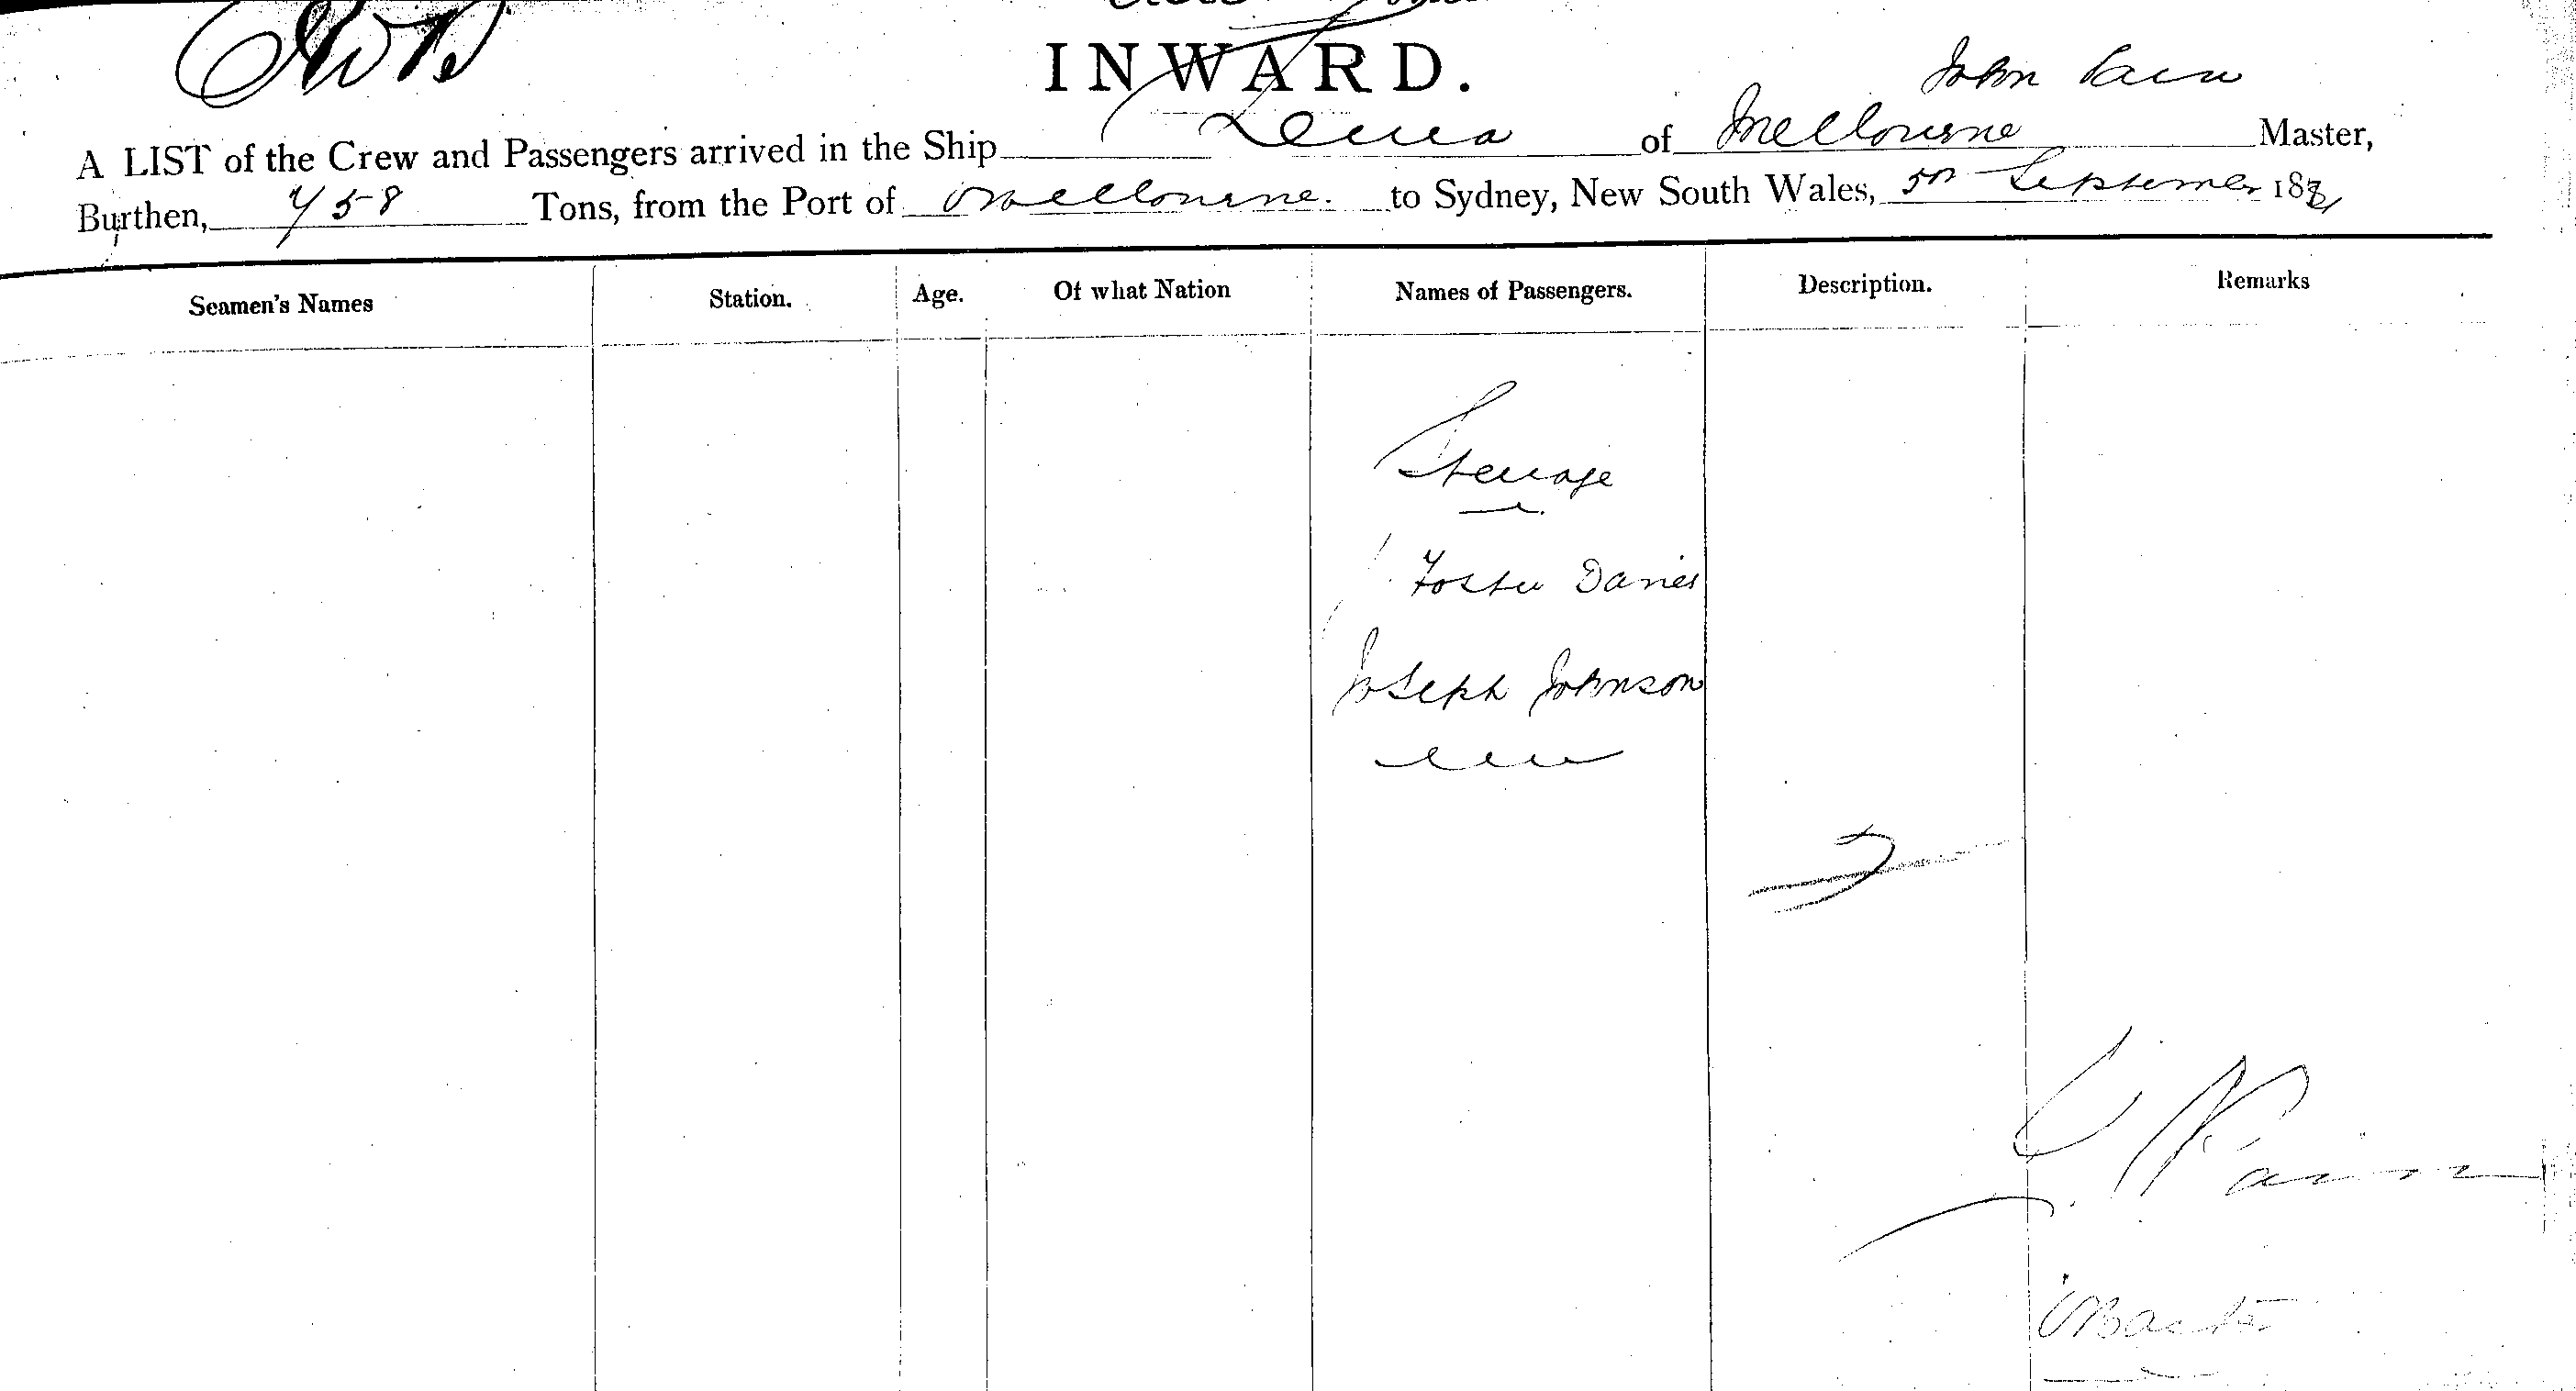 INWARD.
John Pain
A LIST of the Crew and Passengers arrived in the Ship of Melbourne Master,
Burthen, 758 Tons, from the Port of Melbourne. to Sydney, New South Wales, 5th September 188
Seamen's Names Station. Age. Of what Nation Names of Passengers. Description. Remarks
Steerage
Foster Davies
Joseph Johnson
2
J. Pain
Master